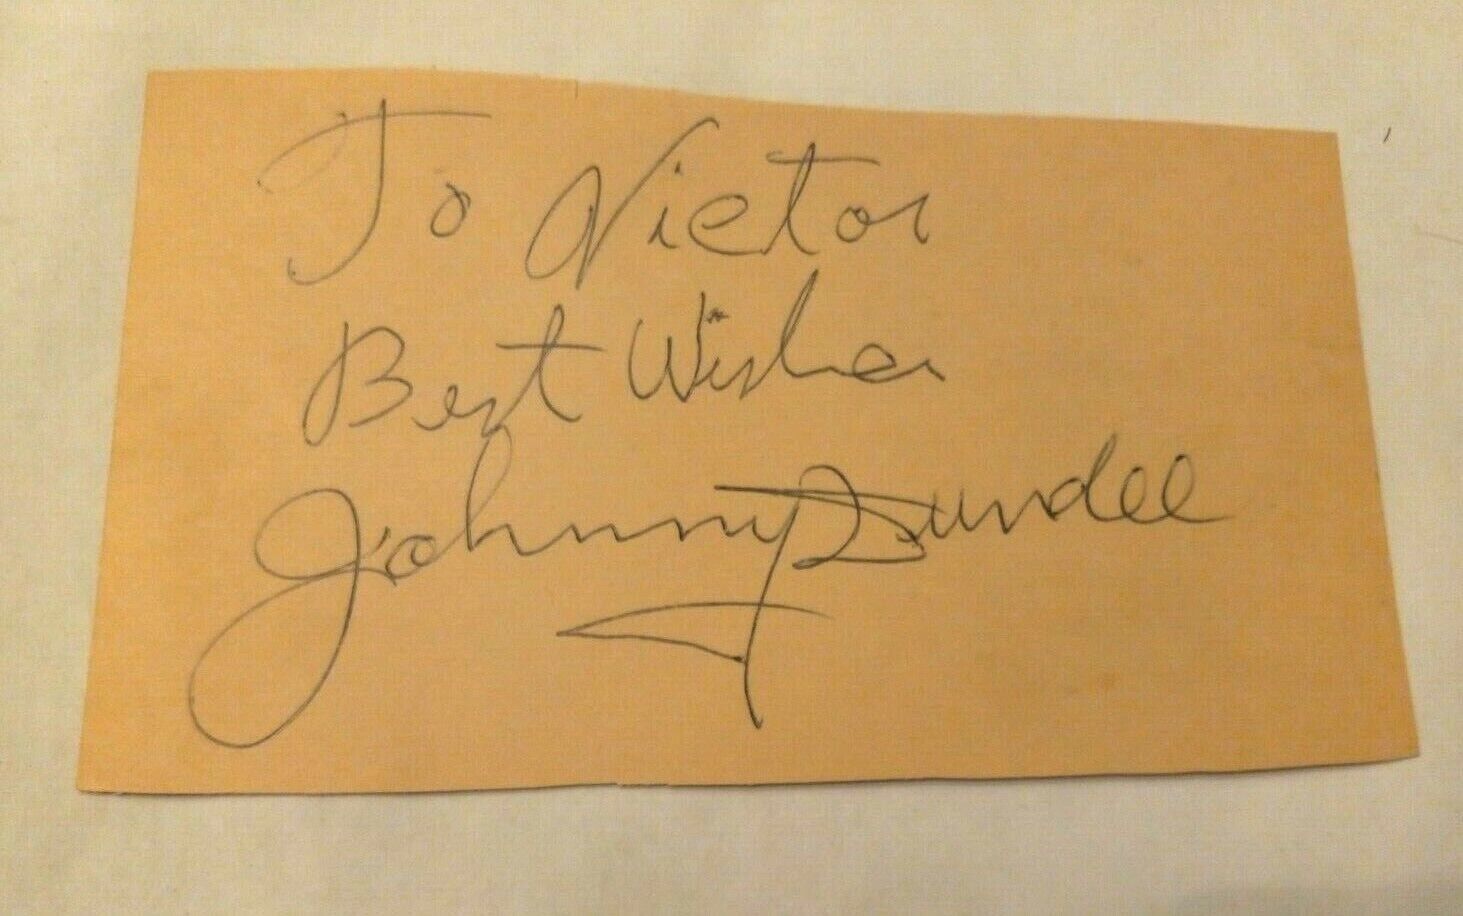 To Victor
Best Wishes
Johnny Dundee